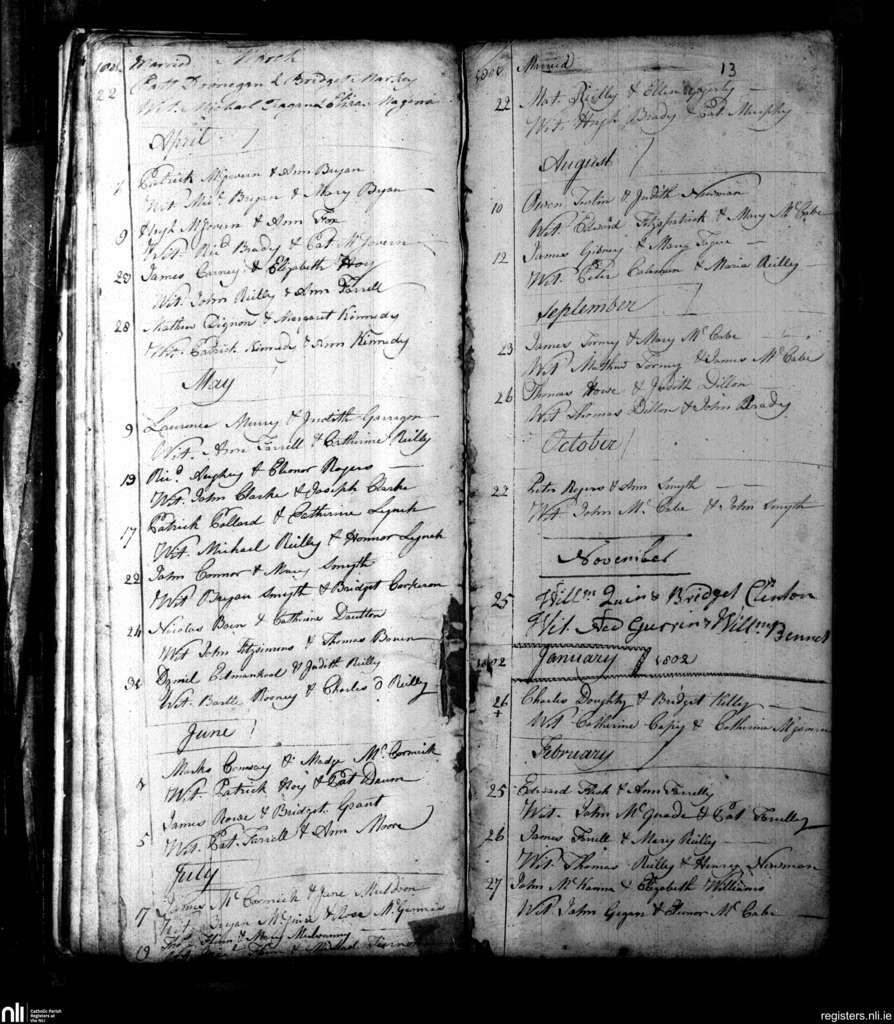 Married March
22 Patt Finnegan & Bridget Markey
Wit. Michael Fagan &
April
Patrick McGovern & Ann Bryan
Wit. Mic.l Bryan & Mary Bryan
9 Hugh McGovern & Ann Fox
Wit. Ric.d Brady & Cat. McGovern
23 James Carney & Elizabeth Hoy
Wit. John Reilly & Ann Farrell
28 Mathew Dignon & Margaret Kinnedy
Wit. Patrick Kinnedy & Ann Kinnedy
May
9 Laurence Murry & Judith Garrigan
Wit. Ann Farrell & Catherine Reilly
13 Ric.d Hughey & Elenor Rogers
Wit. John Clarke & Joseph Clarke
17 Patrick Pollard & Catherine Lynch
Wit. Michael Reilly & Honnor Lynch
22 John Connor & Mary Smyth
Wit Bryan Smyth & Bridget Corkeran
24 Nicolas Boen & Cathrine Daulton
Wit John Fitzsimons & Thomas Bowen
31 Daniel & Judith Reilly
Wit. Bartle Rooney & Charles O Reilly
June
Marks & Madge McCormick
Wit. Patrick Hoy & Pat Daum
5 James Rowe & Bridget Grant
Wit. Pat. Farrell & Ann Moore
July
17 James McCormick & Jane Muldoon
Wit. Bryan & Rose McGinnis
19 & Mary
& Michael
Married 13
22 Mat. Reilly & Ellen
Wit. Hugh Brady & Pat. Murphy
August
10 Owen & Judith Newman
Wit. Edward Fitzpatrick & Mary McCabe
12 James Gibney & Mary Tigue
Wit. Peter Coleman & Maria Reilly
September
23 James Tormy & Mary McCabe
Wit Mathew Tormy & James McCabe
26 Thomas Howe & Judith Dillon
Wit Thomas Dillon & John Brady
October
22 Peter Rogers & Ann Smyth
Wit John McCabe & John Smyth
November
25 Will.m Quin & Bridget Clinton
Wit. Ned Gurrin & Will.m Bennet
1802 January 1802
26 Charles Doughty & Bridget Killey
Wit Catherine & Catherine
February
25 Edward & Ann Farrelly
Wit. John McQuade & Cat Farrelly
26 James Farrell & Mary Reilly
Wit Thomas Reilly & Henry Newman
27 John McKanna & Elizabeth Williams
Wit John Gegan & Elenor McCabe
nli
Catholic Parish
Registers at
the NLI
registers.nli.ie